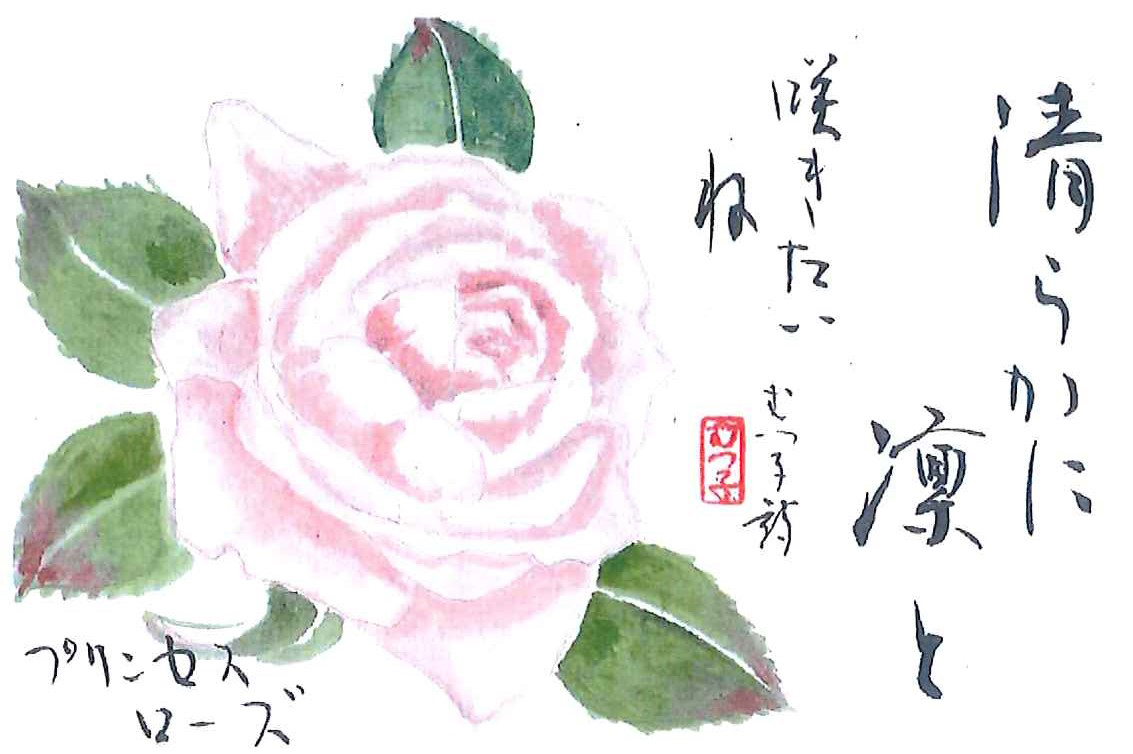 清らかに
凛と
咲きたい
ね
むつ子詩
むつ子
プリンセス
ローズ